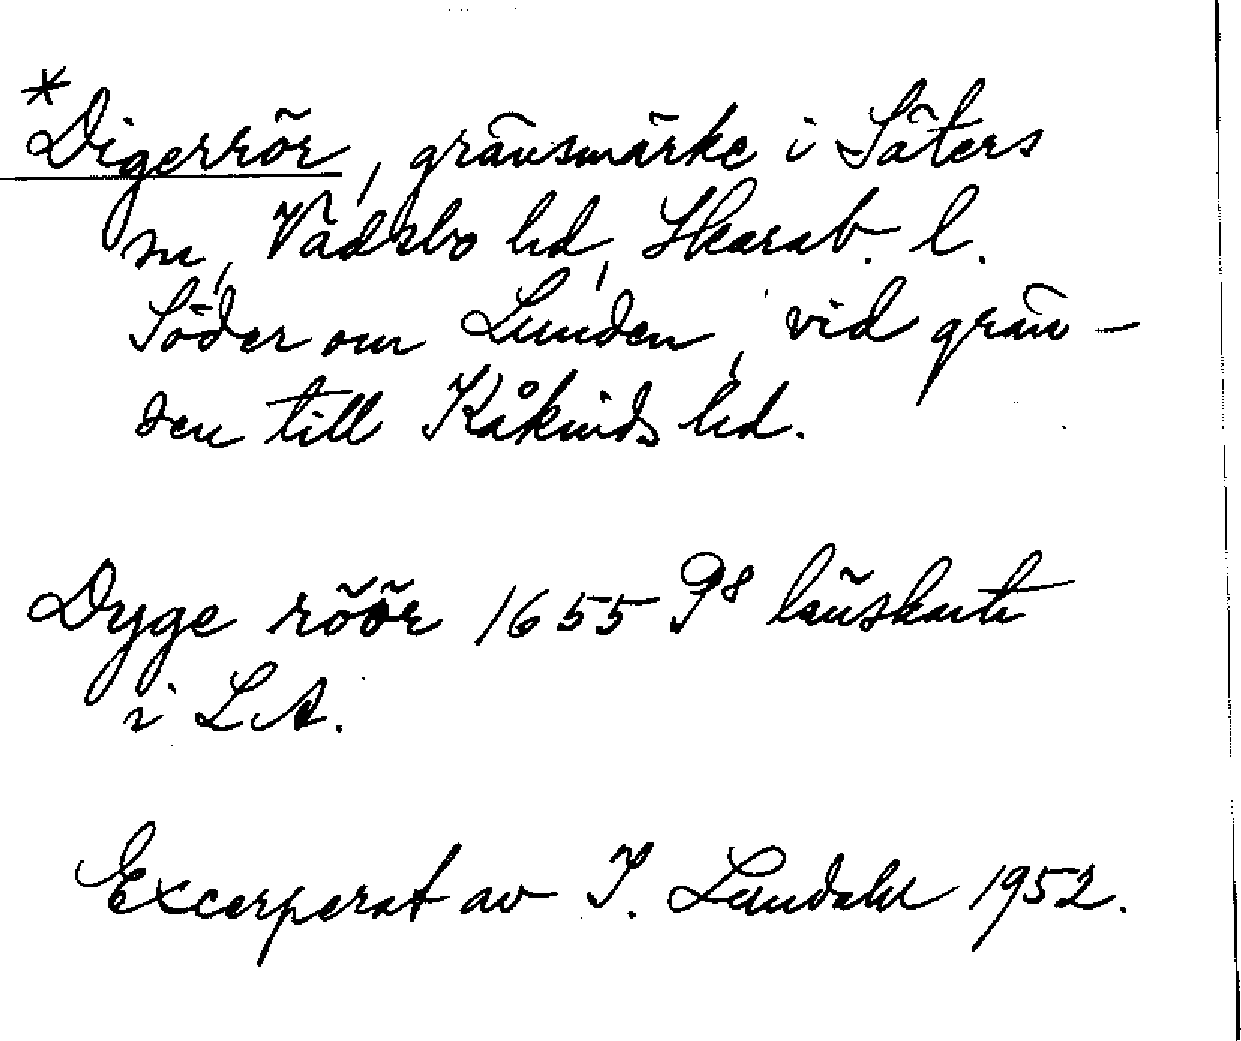 *Digerrör, gränsmärke i Säters
sn, Vadsbo hd, Skarab. l.
Söder om Lunden, vid grän-
sen till Kåkinds hd.
Dyge röör 1655 P8 länskarta
i LA.
Excerperat av I. Lundahl 1952.